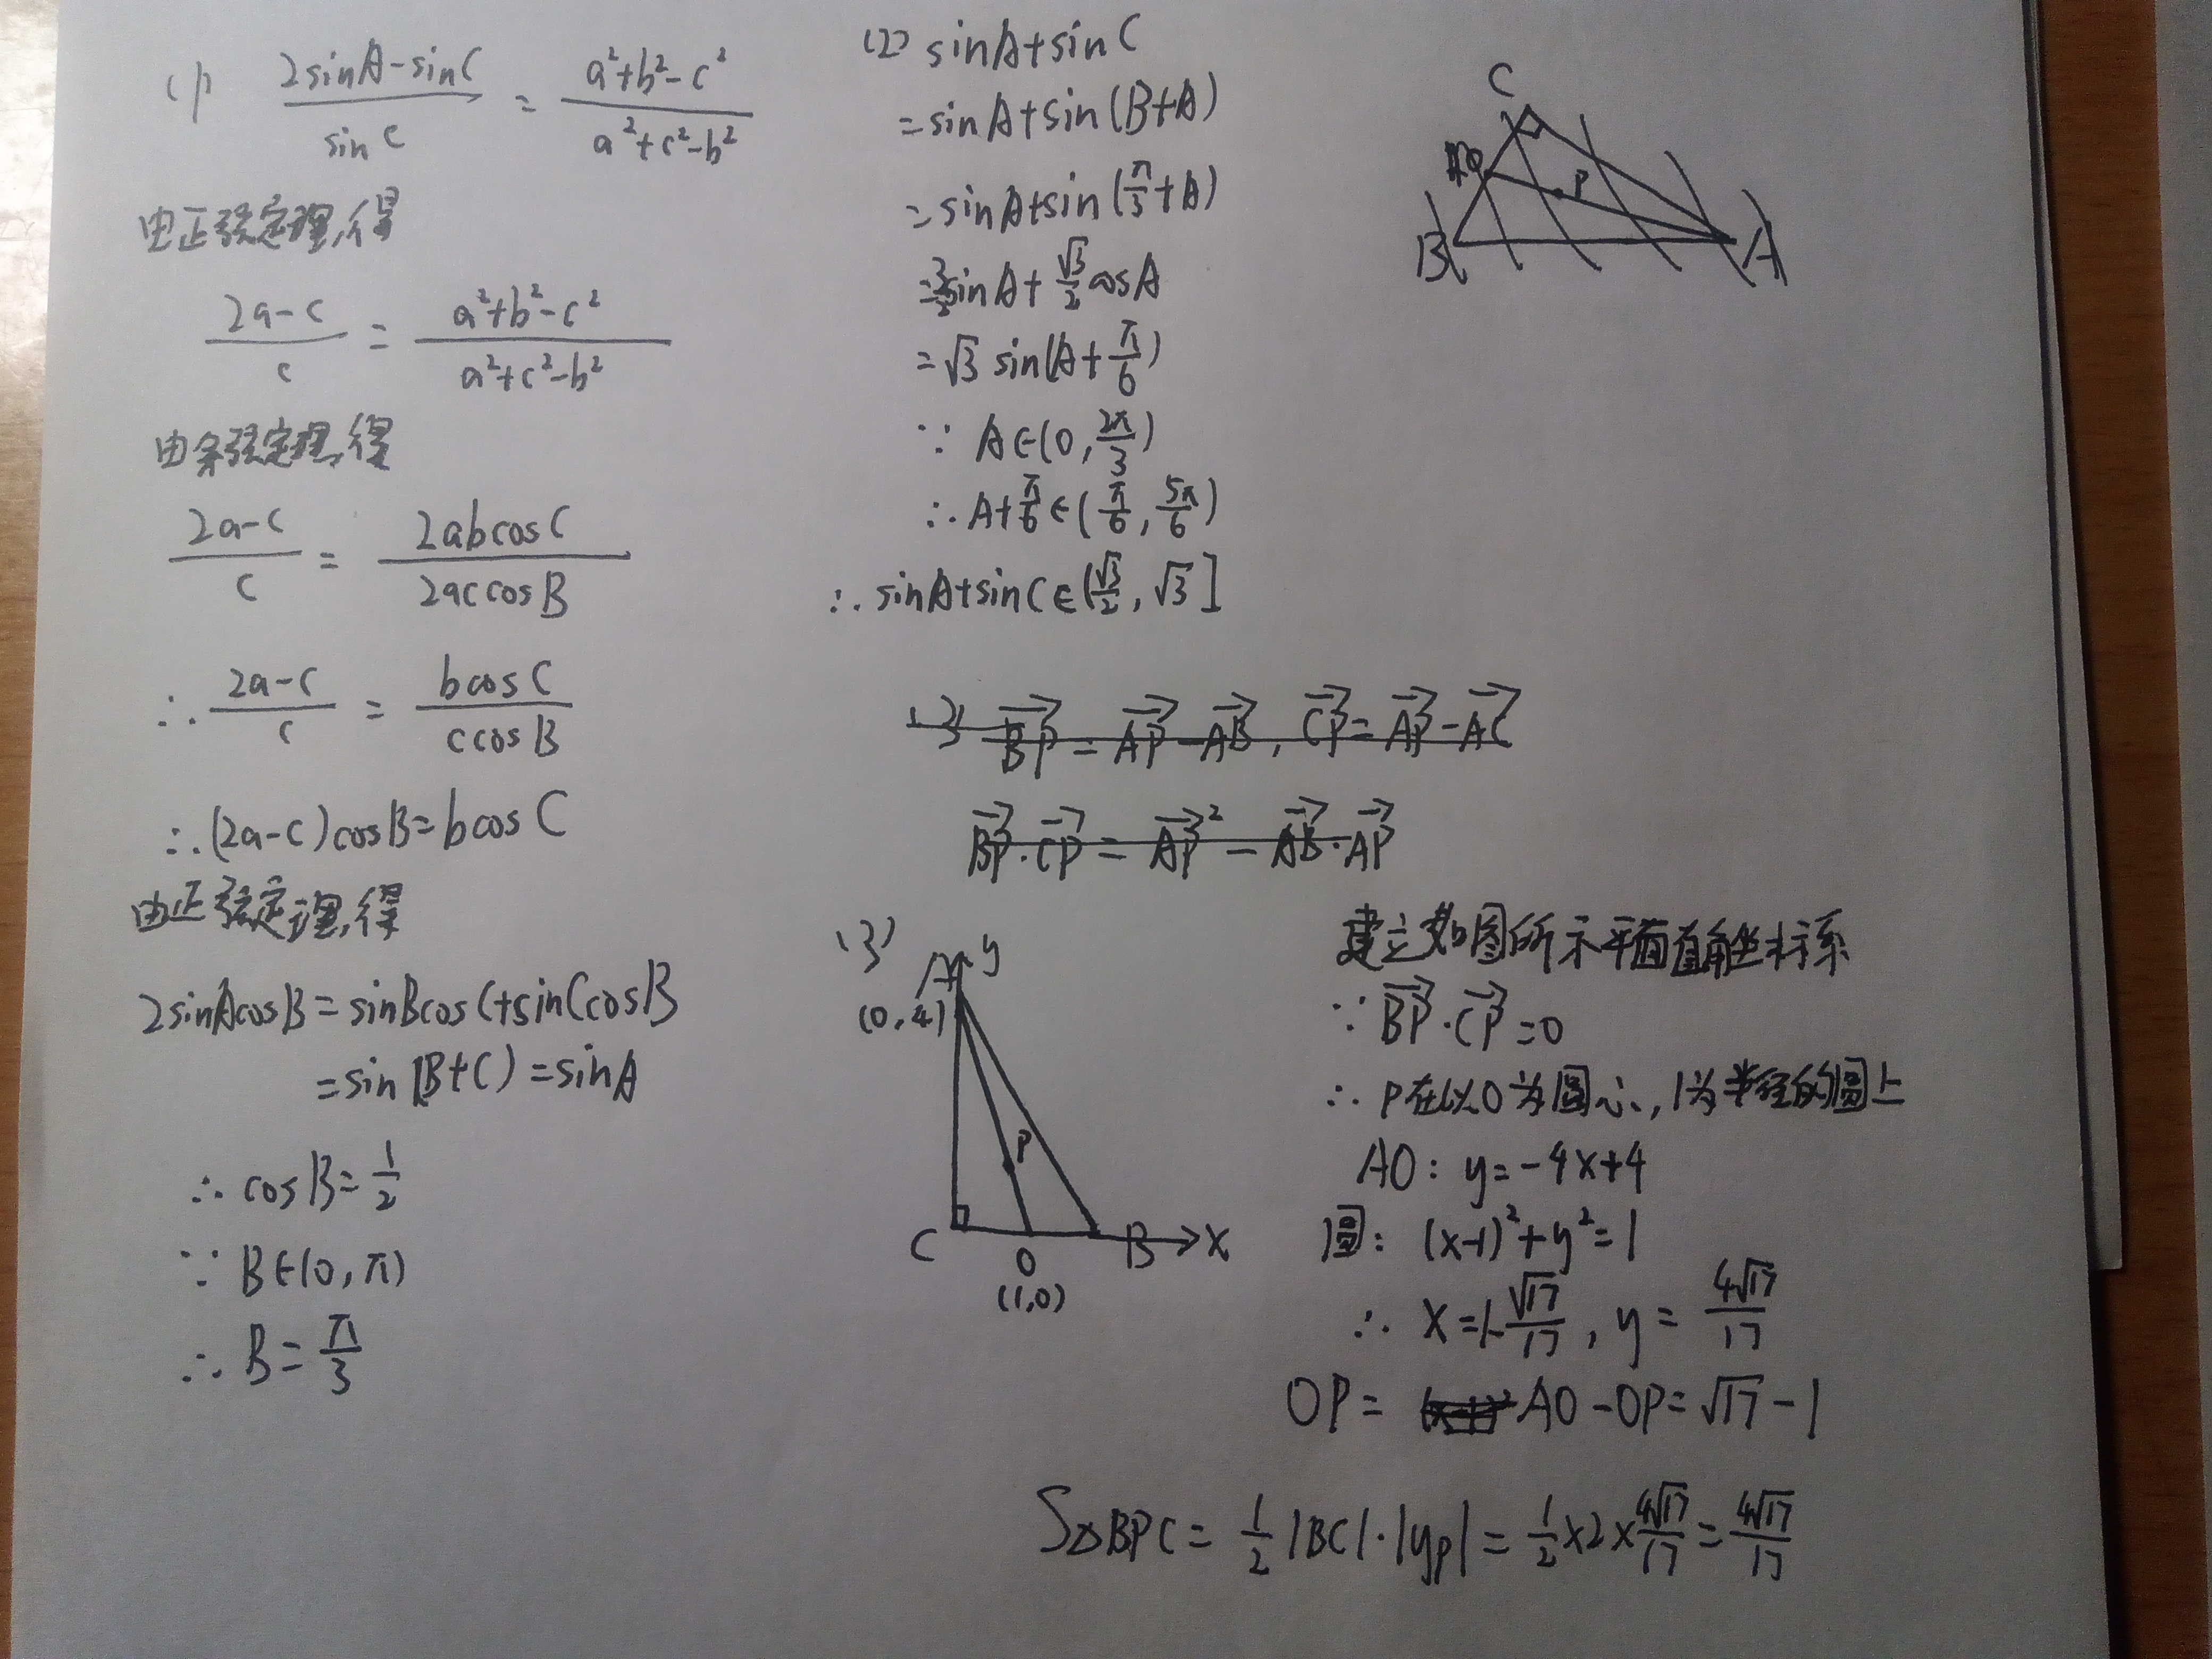 (1) (2sinA-sinC)/(sinC) = (a²+b²-c²)/(a²+c²-b²)
由正弦定理,得
(2a-c)/c = (a²+b²-c²)/(a²+c²-b²)
由余弦定理,得
(2a-c)/c = (2abcosC)/(2accosB)
∴ (2a-c)/c = (bcosC)/(ccosB)
∴(2a-c)cosB=bcosC
由正弦定理,得
2sinAcosB=sinBcosC+sinCcosB
=sin(B+C)=sinA
∴ cosB=1/2
∵ B∈(0,π)
∴ B=π/3
(2) sinA+sinC
=sinA+sin(B+A)
=sinA+sin(π/3+A)
=3/2sinA+√3/2cosA
=√3 sin(A+π/6)
∵ A∈(0,2π/3)
∴ A+π/6∈(π/6,5π/6)
∴ sinA+sinC∈(√3/2,√3]
C
P
B
A
(3) BP→=AP→-AB→, CP→=AP→-AC→
BP→·CP→=AP→²-AB→·AP→
(3)
A y
(0,4)
P
C O B x
(1,0)
建立如图所示平面直角坐标系
∵ BP→·CP→=0
∴ P在以O为圆心,1为半径的圆上
AO: y=-4x+4
圆: (x-1)²+y²=1
∴ x=1-√17/17, y=4√17/17
OP= AO-OP=√17-1
S△BPC=1/2|BC|·|yP|=1/2×2×4√17/17=4√17/17